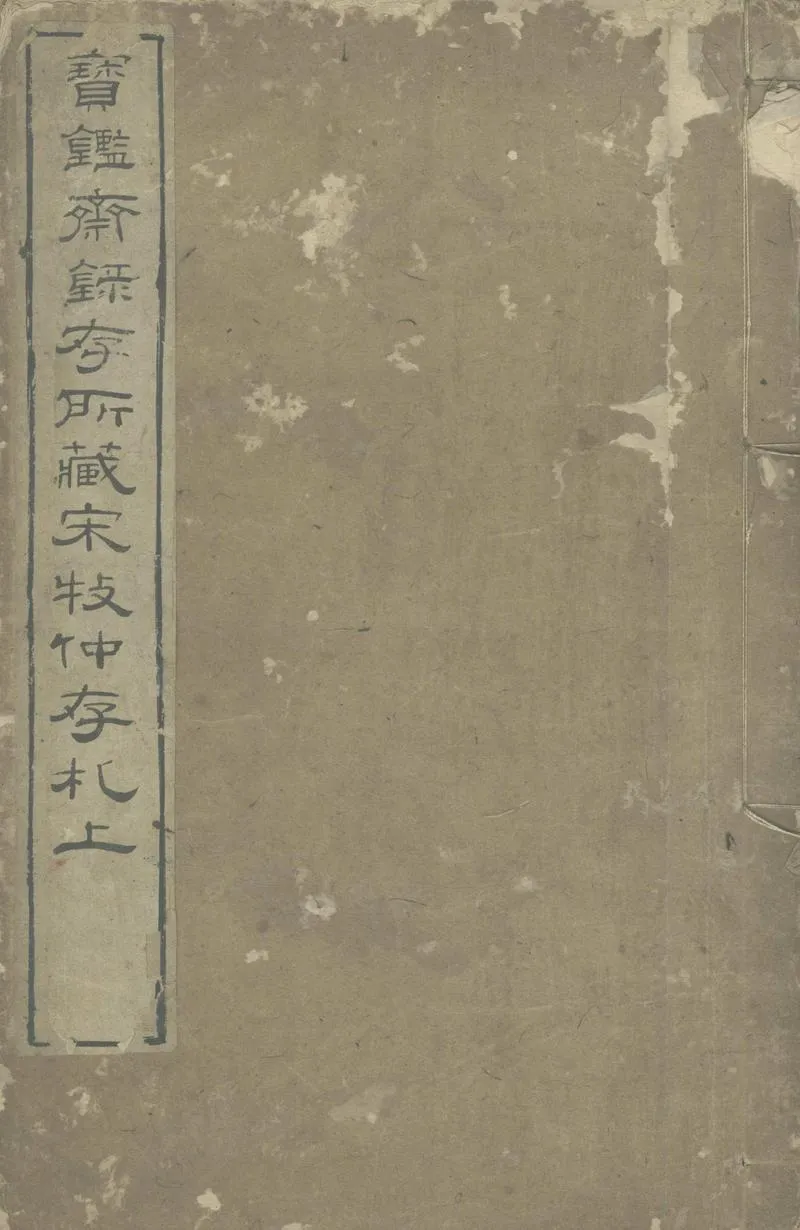 寶鑑齋録存所藏宋牧仲存札上